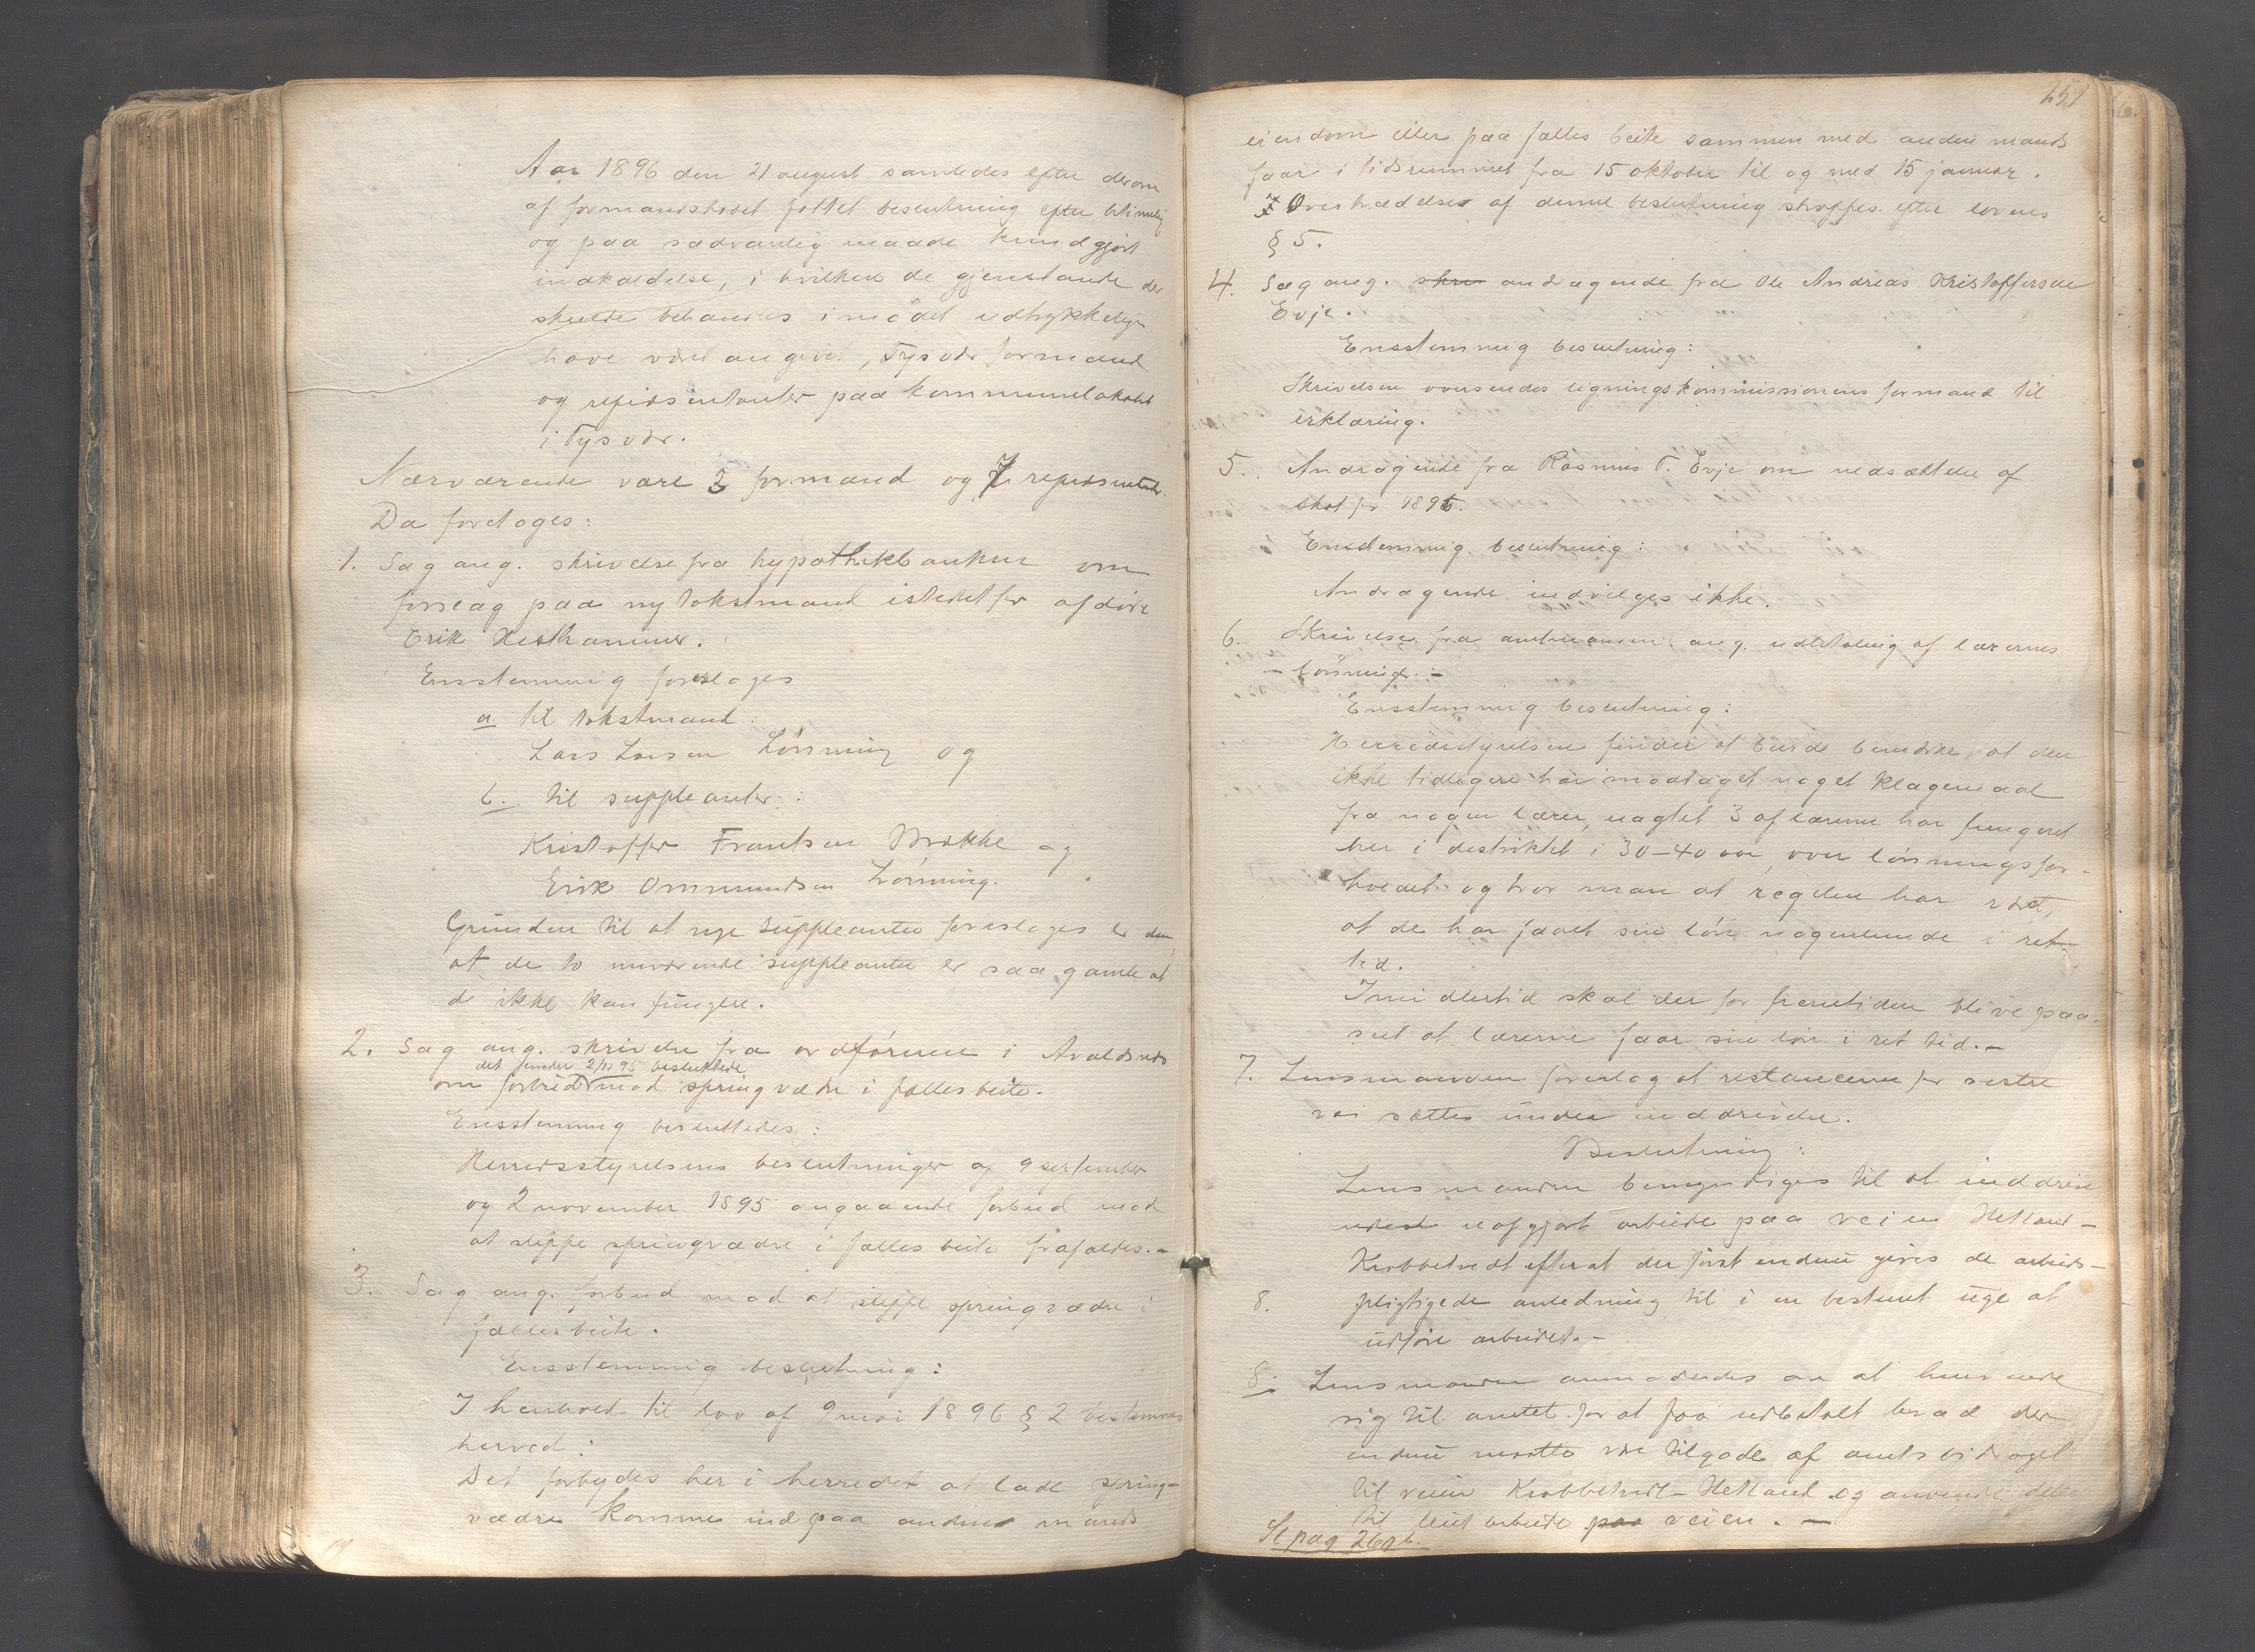 Aar 1896 den 21 august samledes efter derom
af formandskabet fattet beslutning efter betimelig
og paa sædvanlig maade kundgjort
indkaldelse, i hvilken de gjenstande der
skulde behandles i mødet udtrykkelig
have været angivet, Tysvær formænd
og repræsentanter paa kommunelokalet
i Tysvær.
Nærværende vare 3 formænd og 7 repræsentanter.
Da foretoges:
1. Sag ang. skrivelse fra hypothekbanken om
forslag paa ny takstmand istedetfor afdøde
Erik Hesthammer.
Ensstemmig foresloges
a til takstmand
Lars Larsen Lønning og
b. til suppleanter:
Kristoffer Frantsen Brække og
Erik Ommundsen Lønning.
Grunden til at nye suppleanter foreslages er den,
at de to nuværende suppleanter er saa gamle at
de ikke kan fungere.
2. Sag ang. skrivelse fra ordføreren i Avaldsnes
om det under 2/11 95 besluttede forbud mod springvædre i fællesbeite.
Ensstemmig besluttedes:
Herredsstyrelsens beslutninger af 9 september
og 2 november 1895 angaaende forbud mod
at slippe springvædre i fællesbeite frafaldes.-
3. Sag ang. forbud mod at slippe springvædre i
fællesbeite.
Ensstemmig beslutning:
I henhold til lov af 9 mai 1896 § 2 bestemmes
herved:
Det forbydes her i herredet at lade spring-
vædre komme ind paa anden mands
251
eiendom eller paa fælles beite sammen med anden mands
faar i tidsrummet fra 15 oktober til og med 15 januar.
Overtrædelse af denne beslutning straffes efter lovens
§ 5.
4. Sag ang. skri andragende fra Ole Andreas Kristoffersen
Evje.
Ensstemmig beslutning:
Skrivelsen oversendes ligningskommissionens formand til
erklæring.
5. Andragende fra Rasmus T. Evje om nedsættelse af
skat for 1895.
Ensstemmig beslutning:
Andragende indvilges ikke.
6. Skrivelse fra amtmanden ang. udbetaling af lærernes
lønninger.-
Ensstemmig beslutning:
Herredsstyrelsen finder at burde bemærke, at den
ikke tidligere har modtaget noget klagemaal
fra nogen lærer, uagtet 3 af lærerne har fungeret
her i distriktet i 30-40 aar, over lønningsfor-
holdet og tror man at regelen har været,
at de har faaet sin løn nogenlunde i ret-
tid.
Imidlertid skal der for fremtiden blive paa-
seet at lærerne faar sin løn i ret tid.-
7. Lensmanden foreslog at restancerne for
vei sættes under inddrivelse.
Beslutning:
Lensmanden bemyndiges til at inddrive
uafgjort arbeide paa veien Hetland-
Krabbetvedt efterat der først endnu gives de arbeids-
8. pligtigede anledning til i en bestemt uge at
udføre arbeidet.-
8. Lensmanden anmodedes om at henvende
sig til amtet for at faa udbetalt hvad der
endnu maatte være tilgode af amtsbidraget
til veien Krabbetvedt-Hetland og anvende dette
til arbeide paa veien.-
Se pag 267b.